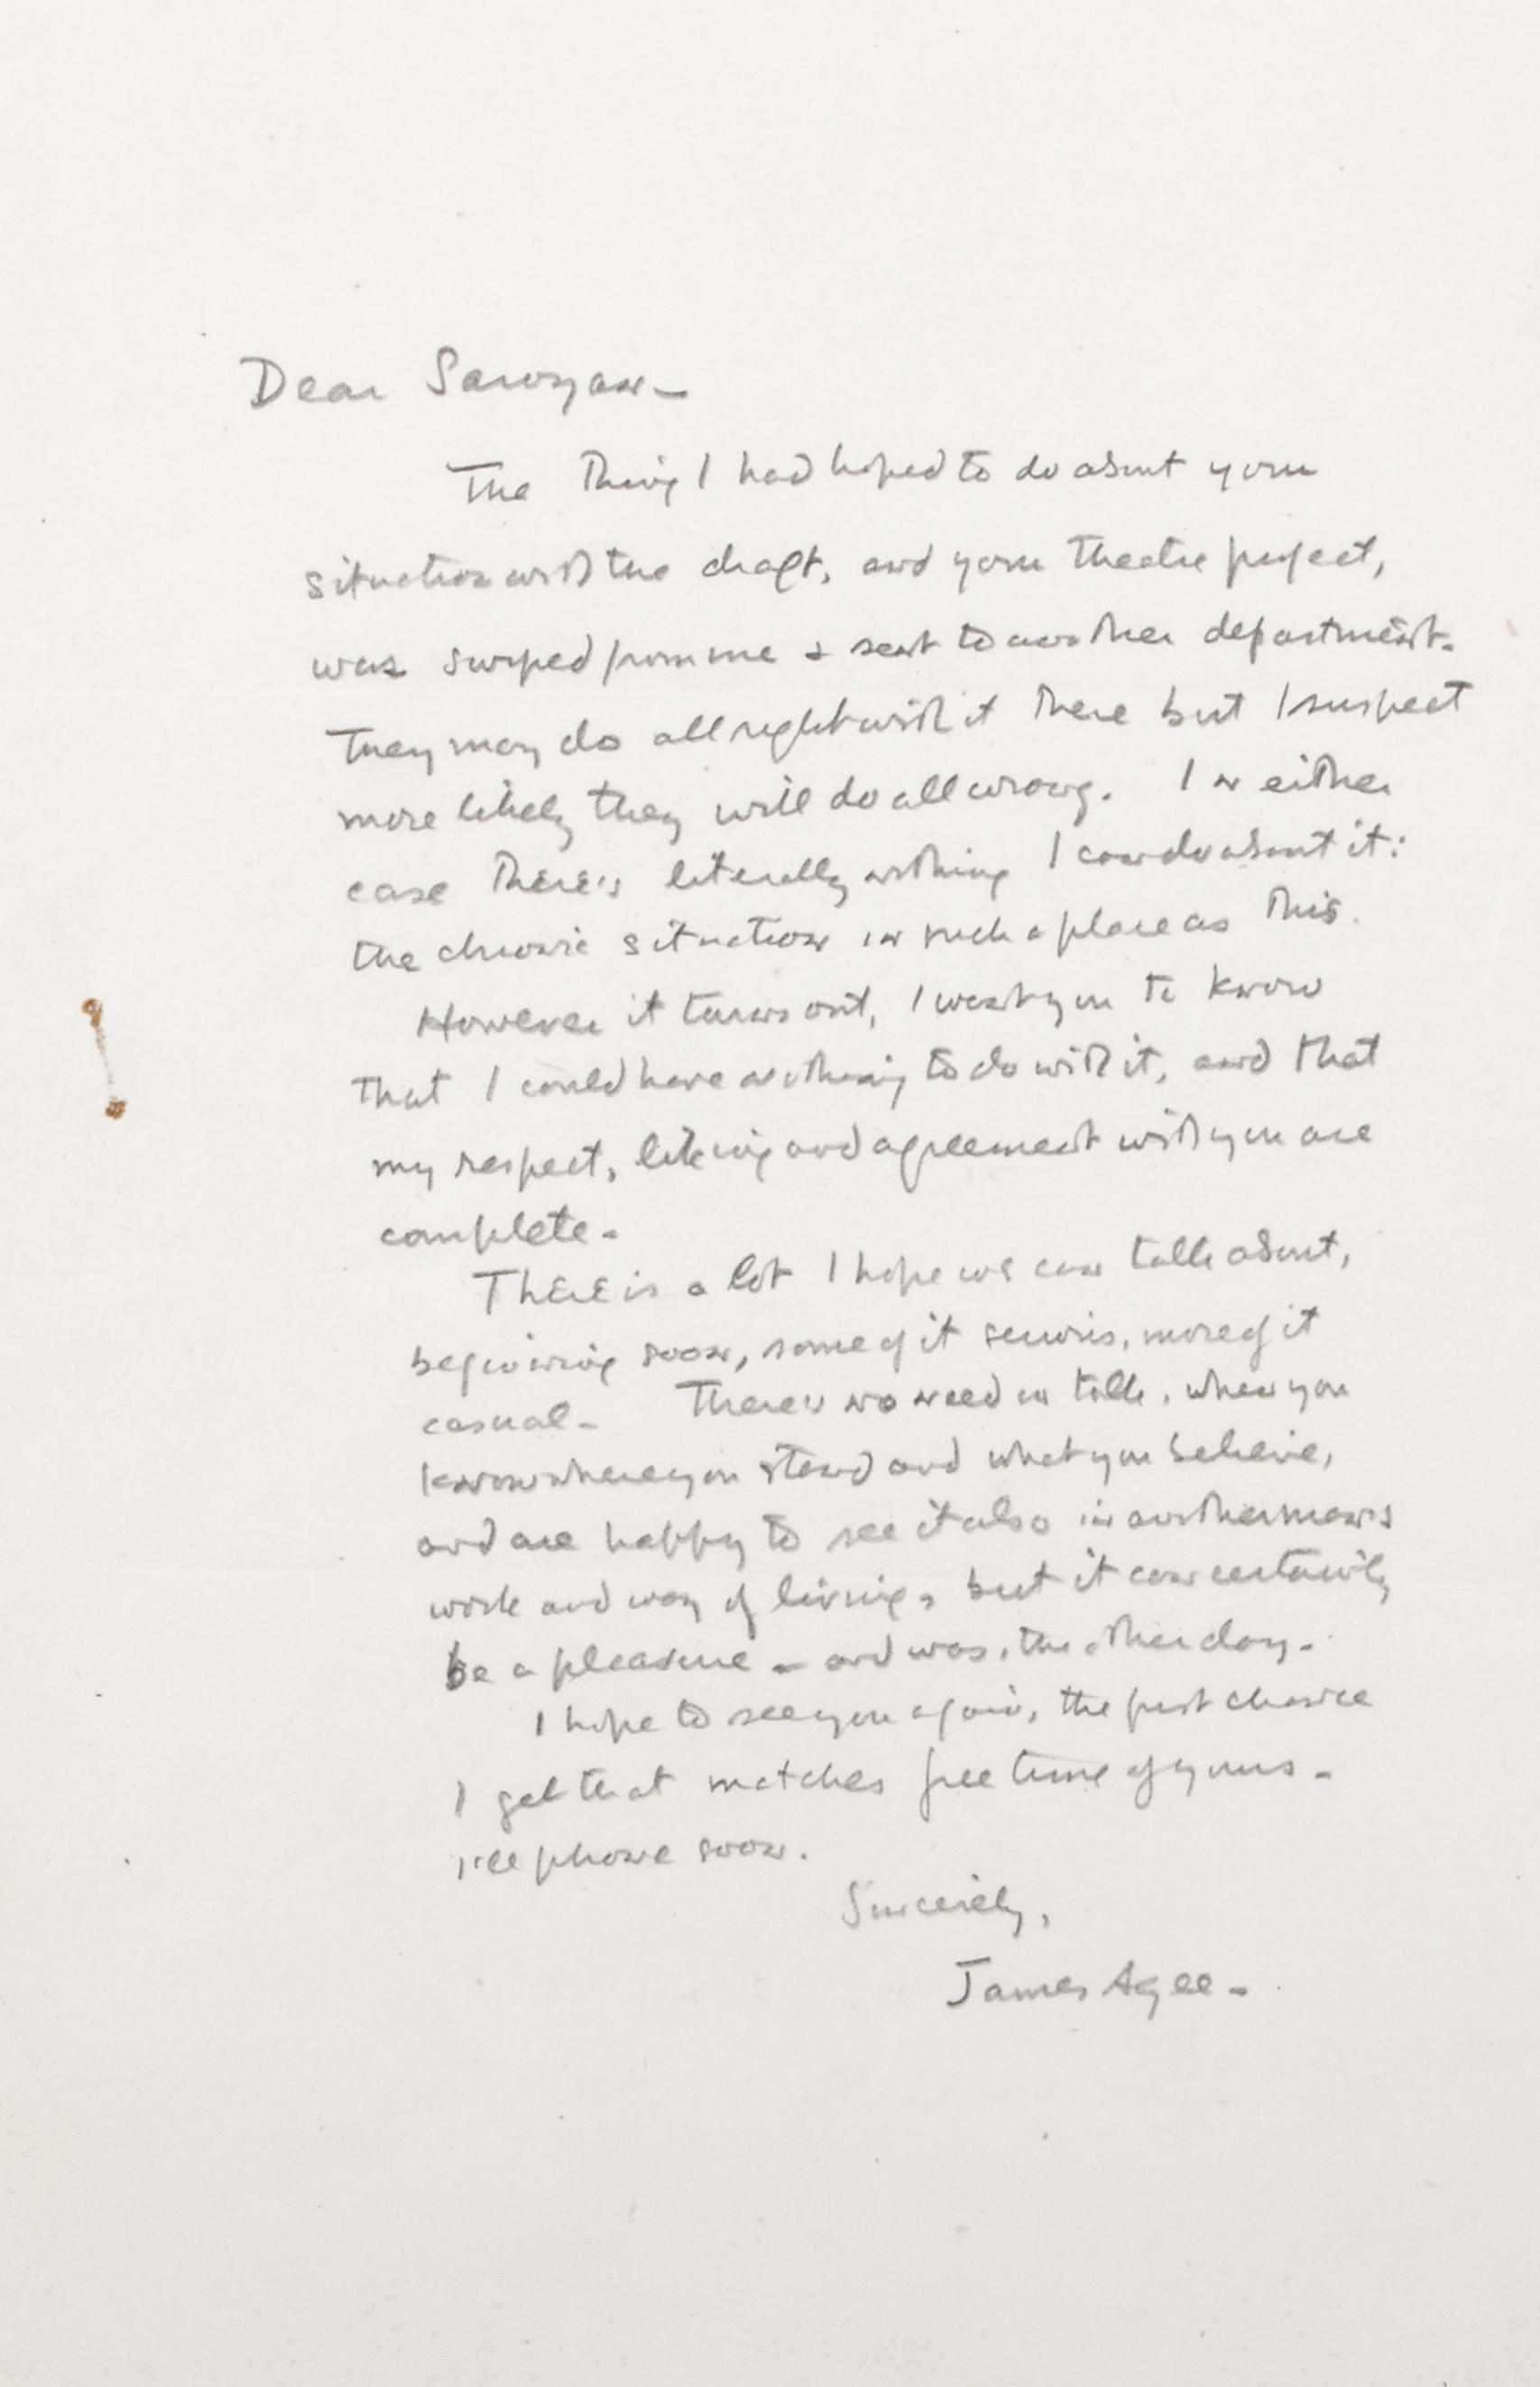 Dear Saroyan—
The thing I had hoped to do about your
situation with the draft, and your theatre project,
was swiped from me & sent to another department.
They may do all right with it there but I suspect
more likely they will do all wrong. In either
case there's literally nothing I can do about it:
the chronic situation in such a place as this.
However it turns out, I want you to know
that I could have nothing to do with it, and that
my respect, liking and agreement with you are
complete.
There is a lot I hope we can talk about,
beginning soon, some of it serious, more of it
casual. There's no need in talk, when you
know where you stand and what you believe,
and are happy to see it also in another man's
work and way of living, but it can certainly
be a pleasure — and was, the other day.
I hope to see you again, the first chance
I get that matches free time of yours.
I'll phone soon.
Sincerely,
James Agee—